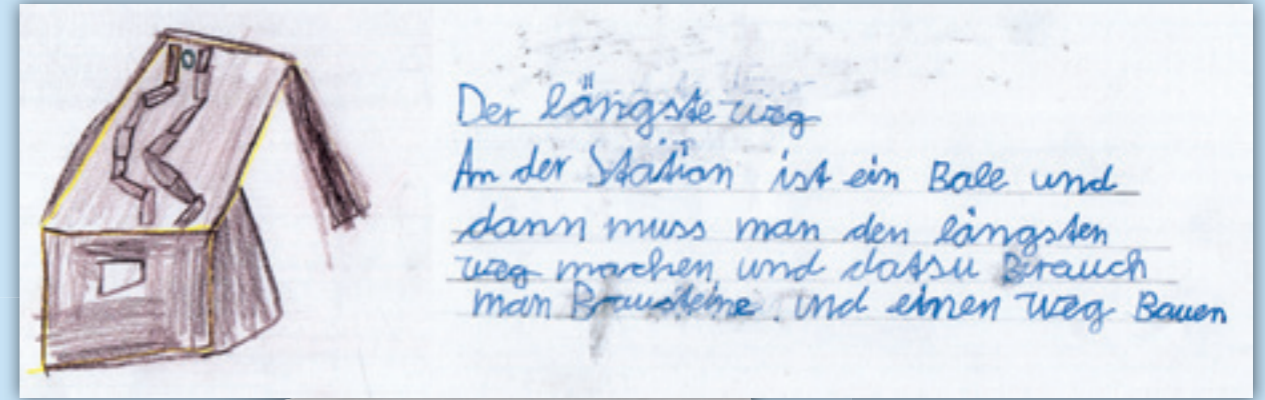 Der längste weg
An der Station ist ein Ball und
dann muss man den längsten
weg machen und datsu Berauch
man Brausteine und einen weg Bauen